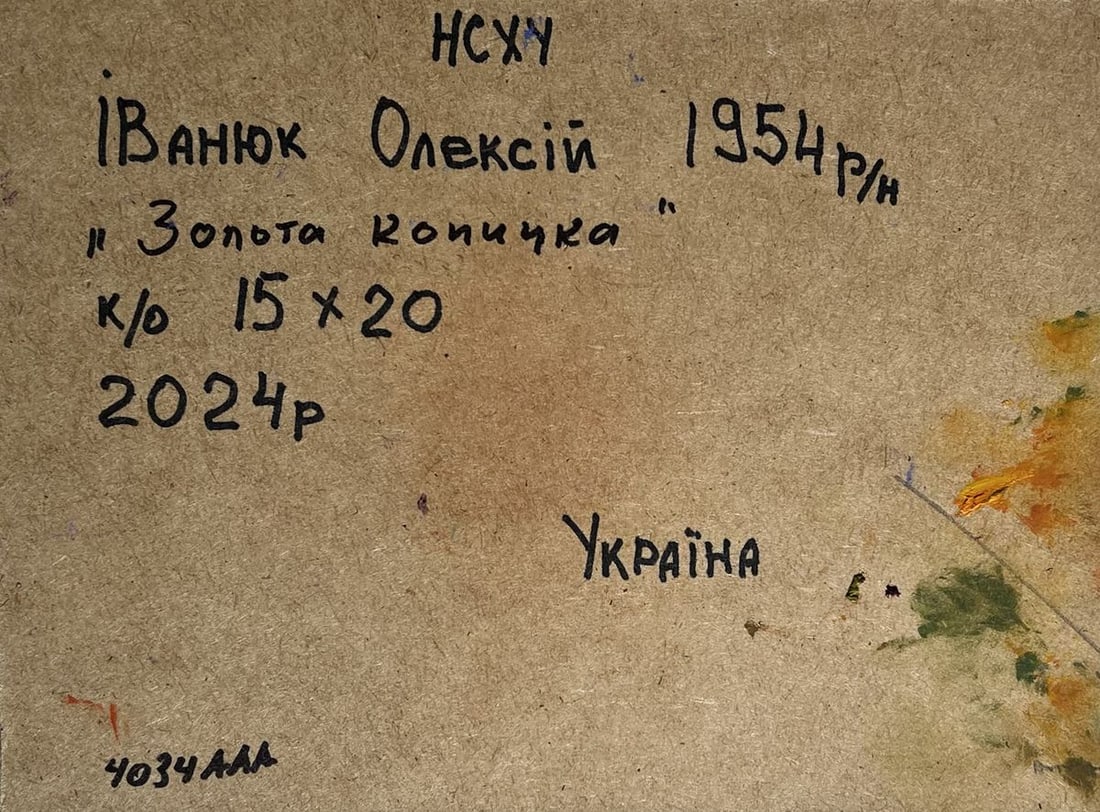 НСХУ
Іванюк Олексій 1954 р/н
„Золота копицка"
к/о 15 x 20
2024р
Україна
4034ААА